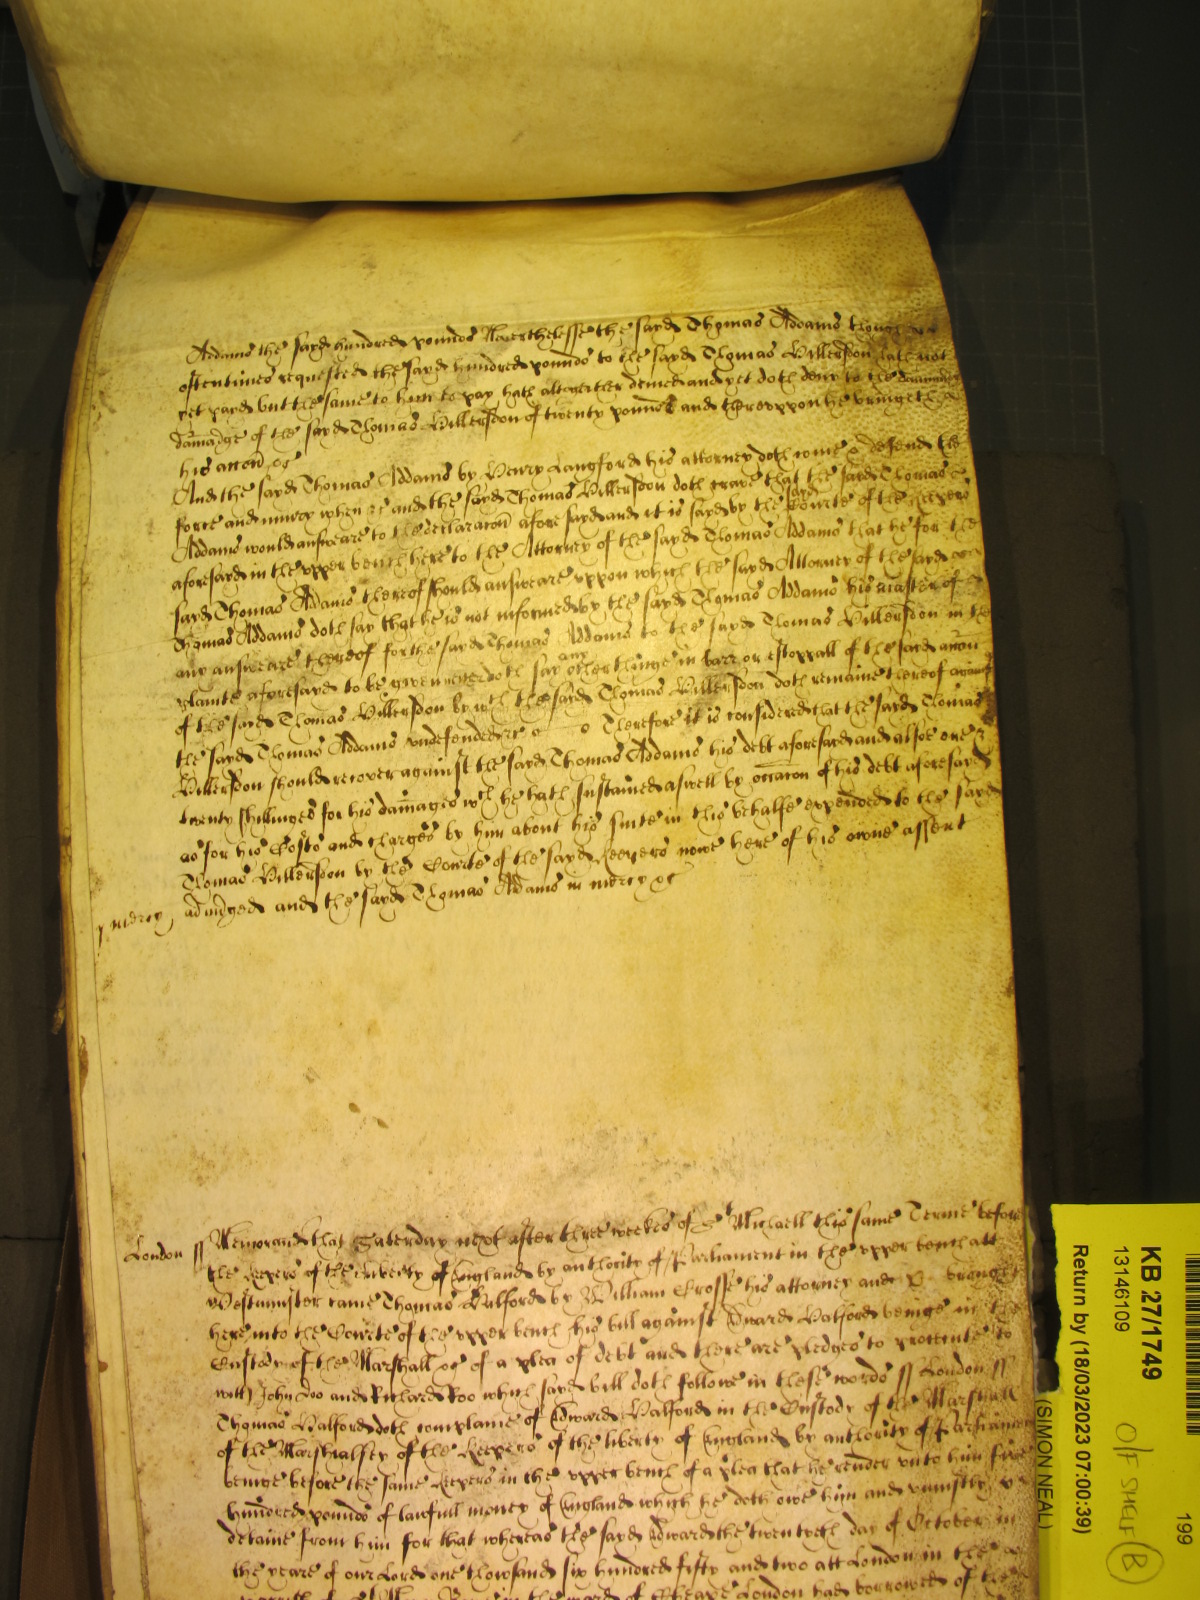 Addams the sayd hundred pounds Neverthelesse the sayd Thomas Addams though
oftentimes requested the sayd hundred pounds to the sayd Thomas Villersdon hath not
yet payd but the same to him to pay hath altogether denied and yet doth deny to the
damadge of the sayd Thomas Villersdon of twenty pounds and thereuppon he bringeth
his accon &c
And the sayd Thomas Addams by Henry Langford his attorney doth come & defend the
force and iniury when &c and the sayd Thomas Villersdon doth crave that the sayd Thomas
Addams would answeare to the declaracon aforesayd and it is sayd by the sayd Courte of the keepers
aforesayd in the upper bench here to the Attorney of the sayd Thomas Addams that he for the
sayd Thomas Addams thereof should answeare uppon which the sayd Attorney of the sayd
Thomas Addams doth say that he is not informed by the sayd Thomas Addams his master of
any answeare thereof for the sayd Thomas Addams to the sayd Thomas Villersdon in the
plainte aforesayd to be given doth say any other thinge in barr or estoppall of the sayd accon
of the sayd Thomas Villersdon by wch the sayd Thomas Villersdon doth remaine thereof against
the sayd Thomas Addams undefended &c Therefore it is considered that the sayd Thomas
Villersdon should recover against the sayd Thomas Addams his debt aforesayd and alsoe one &
twenty shillinges for his damages wch he hath sustained aswell by occacon of his debt aforesayd
as for his Costs and charges by him about his suite in this behalfe expended to the sayd
Thomas Villersdon by the Courte of the sayd keepers nowe here of his owne assent
adiudged and the sayd Thomas Addams in mercy &c
mercy
London ss Memorand that Saterday next after three weekes of St Michaell this same Terme before
the keepers of the liberty of England by authority of Parliament in the upper bench att
Westminster came Thomas Valford by William Crosse his attorney and brought
here into the Courte of the upper bench his bill against Edward Valford beinge in the
Custody of the Marshall &c of a plea of debt and there are pledges to prosecute to
witt John Doo and Richard Roo which sayd bill doth followe in these words ss London ss
Thomas Valford doth complaine of Edward Valford in the Custody of the Marshall
of the Marshalsey of the keepers of the liberty of England by authority of Parliament
beinge before the same keepers in the upper bench of a plea that he render unto him five
hundred pounds of lawfull money of England which he doth owe him and uniustly
detaine from him for that whereas the sayd Edward the twentyeth day of October in
the yeare of our Lord one thowsand six hundred fifty and two att London in the
in the ward of Cheape London had borrowed of the
KB 27/1749
13146109
Return by (18/03/2023 07:00:39)
(SIMON NEAL)
O/F SHELF B
199